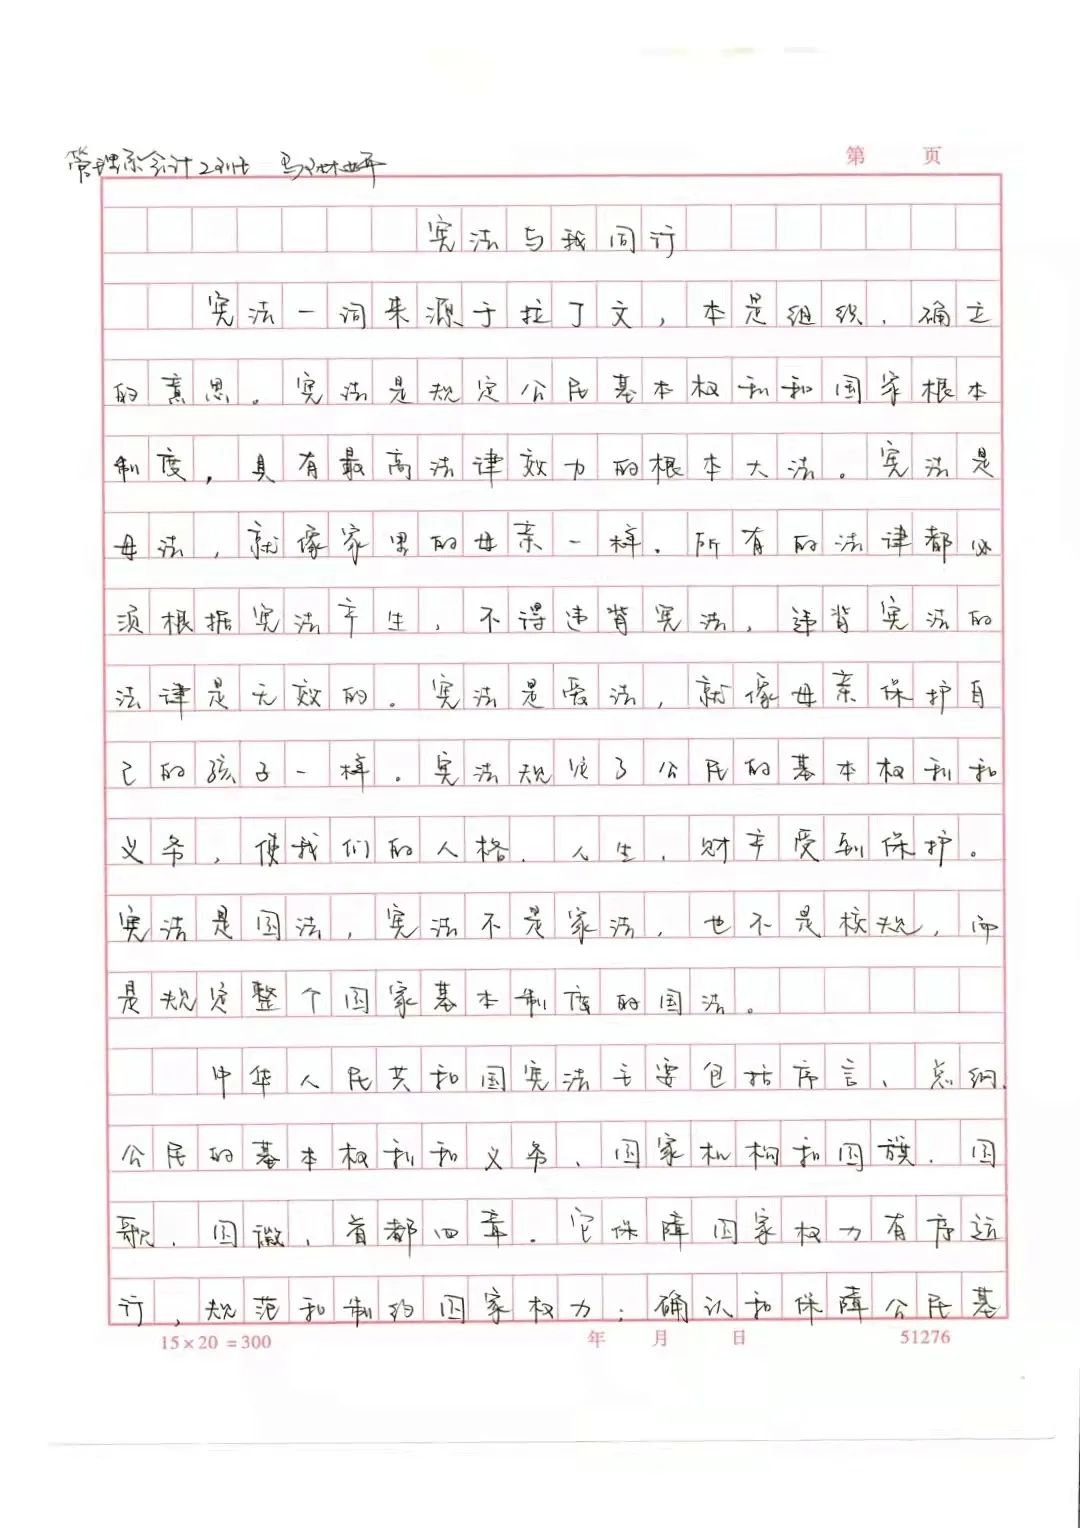 管理系会计2班 马
第 页
宪法与我同行
宪法一词来源于拉丁文，本是组织、确立
的意思。宪法是规定公民基本权利和国家根本
制度，具有最高法律效力的根本大法。宪法是
母法，就像家里的母亲一样。所有的法律都必
须根据宪法产生，不得违背宪法，违背宪法的
法律是无效的。宪法是爱法，就像母亲保护自
己的孩子一样。宪法规定了公民的基本权利和
义务，使我们的人格、人生、财产受到保护。
宪法是国法，宪法不是家法，也不是校规，而
是规定整个国家基本制度的国法。
中华人民共和国宪法主要包括序言、总纲、
公民的基本权利和义务、国家机构和国旗、国
歌、国徽、首都四章。它保障国家权力有序运
行，规范和制约国家权力；确认和保障公民基
15×20=300 年 月 日 51276